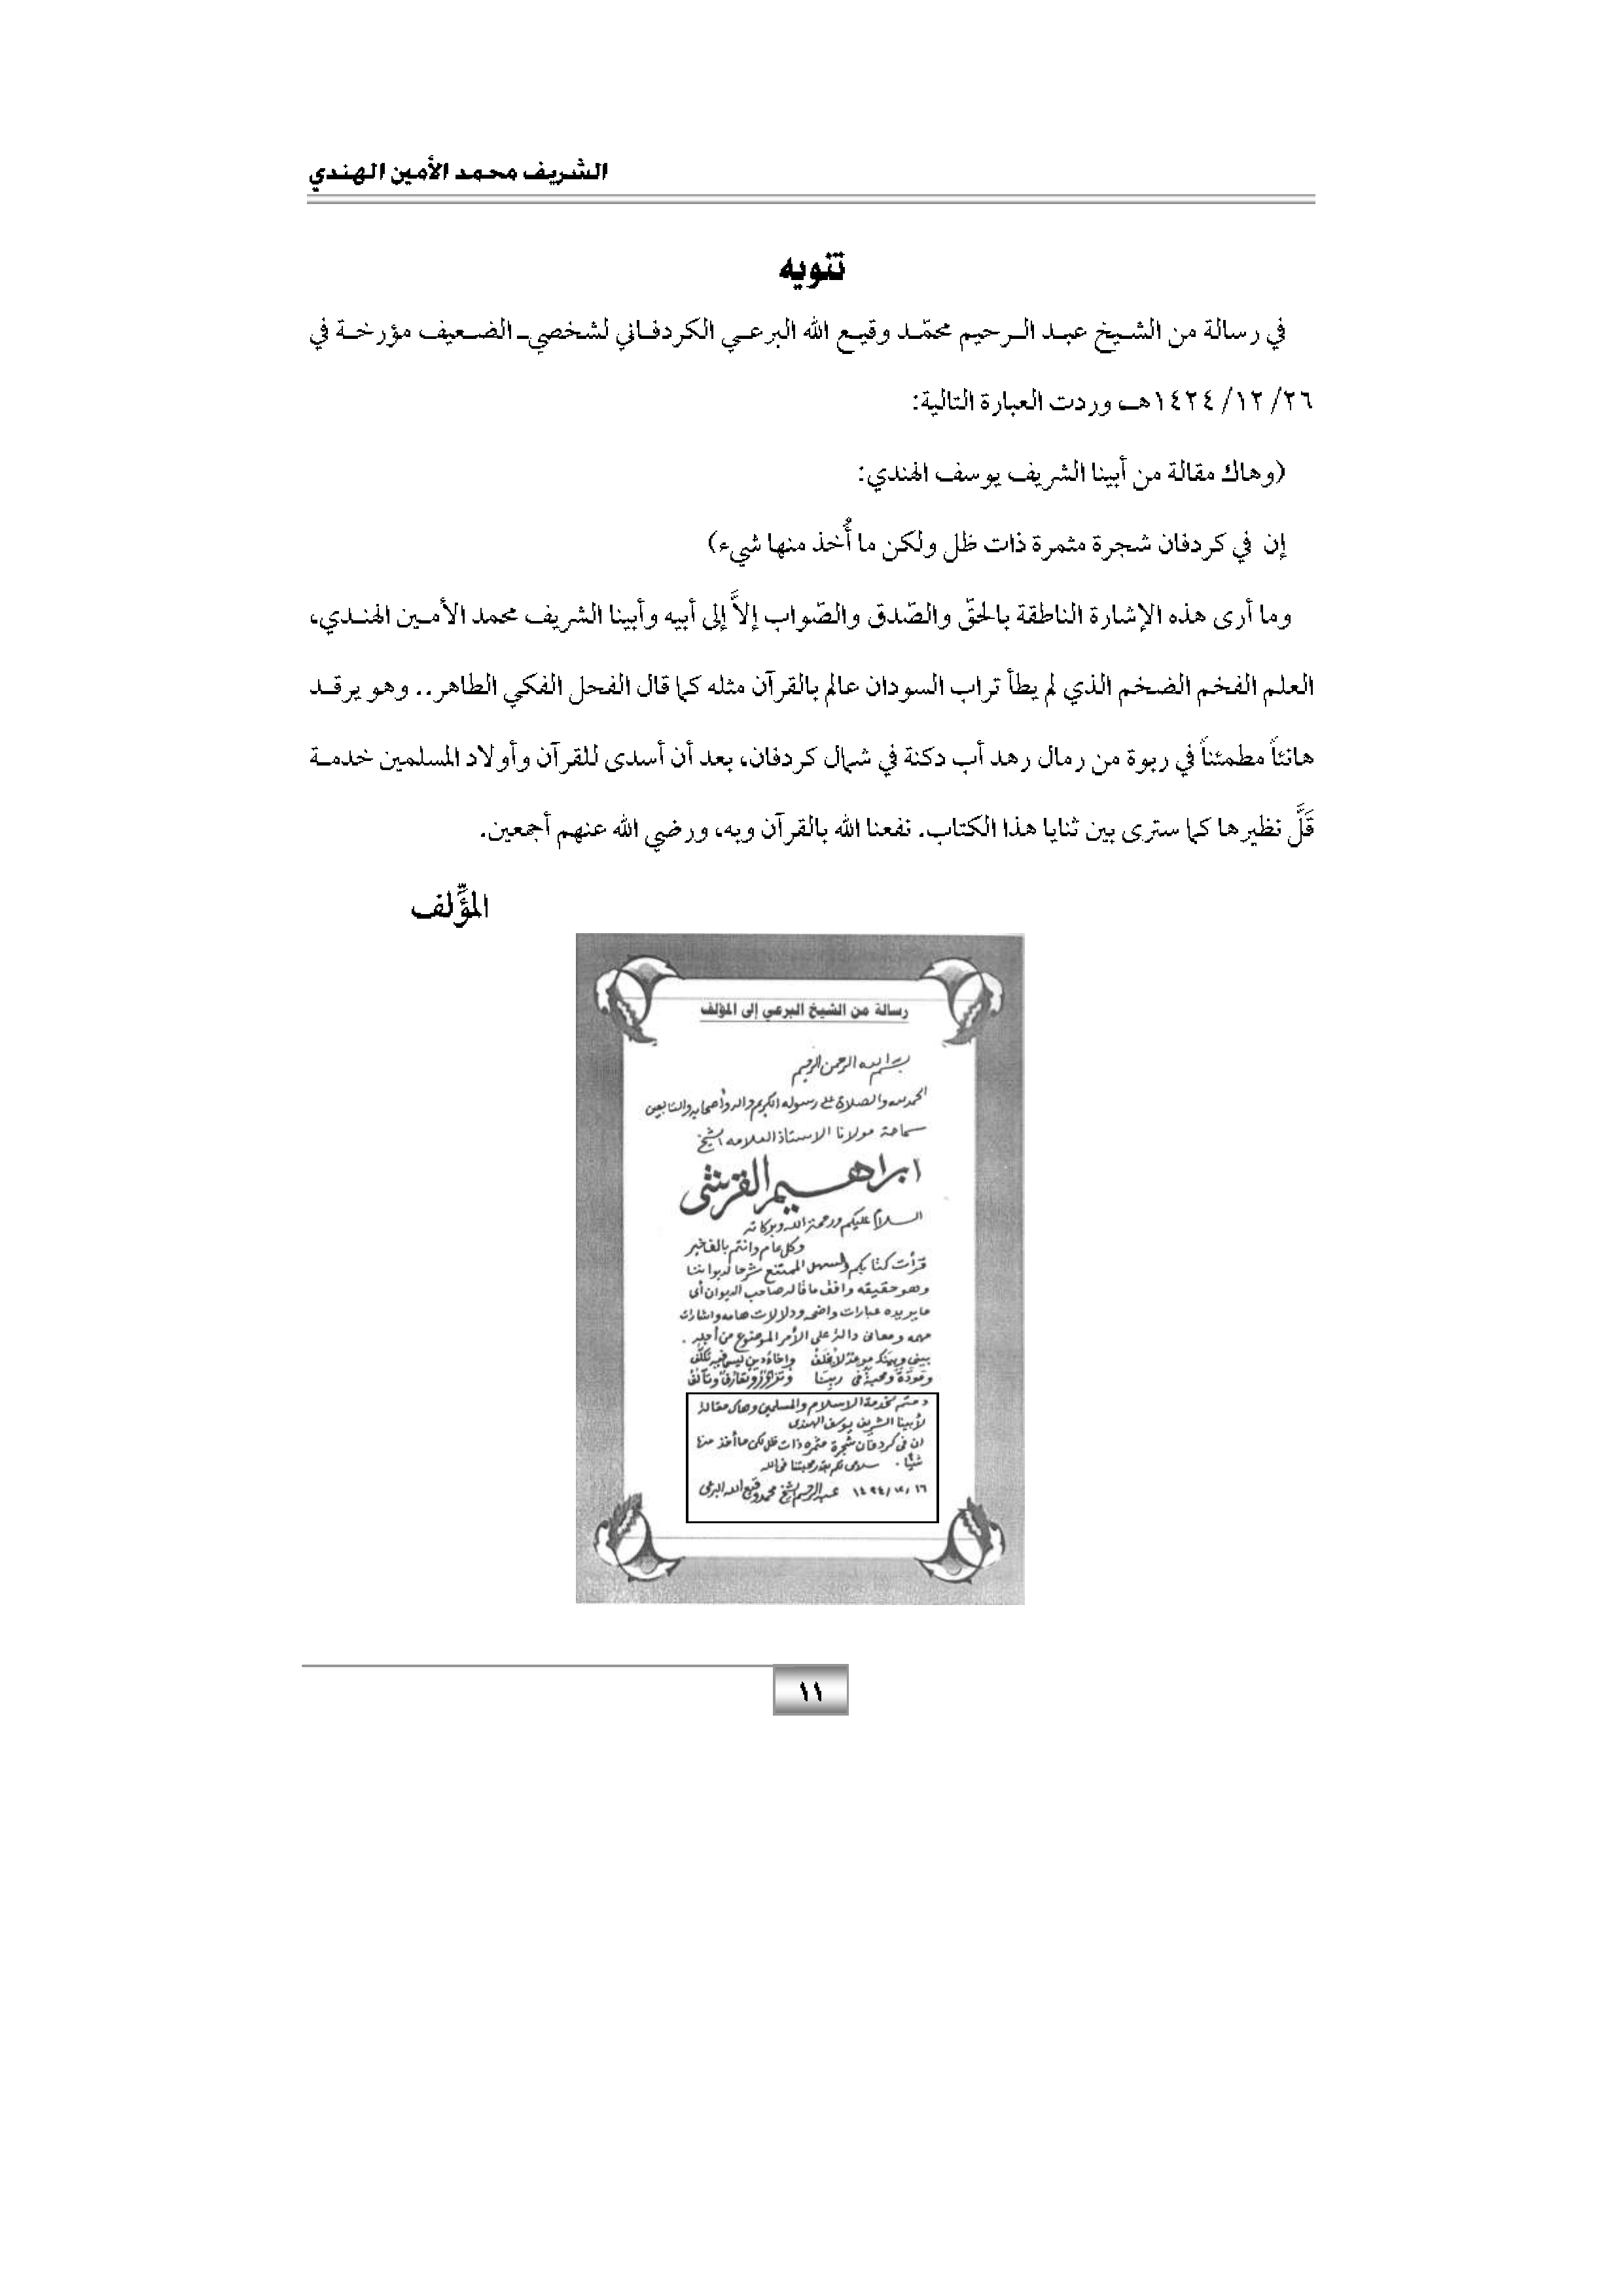 الشريف محمد الأمين الهندي
تنويه
في رسالة من الشيخ عبد الرحيم محمّد وقيع الله البرعي الكردفاني لشخصي ـ الضعيف مؤرخة في
٢٦/ ١٢/ ١٤٢٤هـ وردت العبارة التالية:
(وهاك مقالة من أبينا الشريف يوسف الهندي:
إن في كردفان شجرة مثمرة ذات ظل ولكن ما أُخذ منها شيء)
وما أرى هذه الإشارة الناطقة بالحقّ والصّدق والصّواب إلاَّ إلى أبيه وأبينا الشريف محمد الأمين الهندي،
العلم الفخم الضخم الذي لم يطأ تراب السودان عالم بالقرآن مثله كما قال الفحل الفكي الطاهر.. وهو يرقد
هانئاً مطمئناً في ربوة من رمال رهد أب دكنة في شمال كردفان، بعد أن أسدى للقرآن وأولاد المسلمين خدمة
قَلَّ نظيرها كما سترى بين ثنايا هذا الكتاب. نفعنا الله بالقرآن وبه، ورضي الله عنهم أجمعين.
المؤلِّف
رسالة من الشيخ البرعي إلى المؤلف
بسم الله الرحمن الرحيم
الحمد لله والصلاة على رسوله الكريم وآله وأصحابه والتابعين
سماحة مولانا الاستاذ العلامه الشيخ
ابراهيم القرشي
السلام عليكم ورحمة الله وبركاته
وكل عام وانتم بالف خير
قرأت كتابكم السهل الممتنع شرحا لديواننا
وهو حقيقه وافق ما قاله صاحب الديوان أى
ما يريده عبارات واضحه ودلالات هامه واشارات
مهمه ومعانى دالة على الأمر الموضوع من أجله .
بينى وبينكم موعد لا يخلف واخاء دين ليس فيه تكلف
ومودة ومحبة فى ربنا وتزاور وتعارف وتآلف
دمتم لخدمة الاسلام والمسلمين وهاك مقالة
لأبينا الشريف يوسف الهندى
ان فى كردفان شجرة مثمره ذات ظل لكن ما أخذ منها
شيئا . سلامى لكم
عبد الرحيم الشيخ محمد وقيع الله البرعى
١١